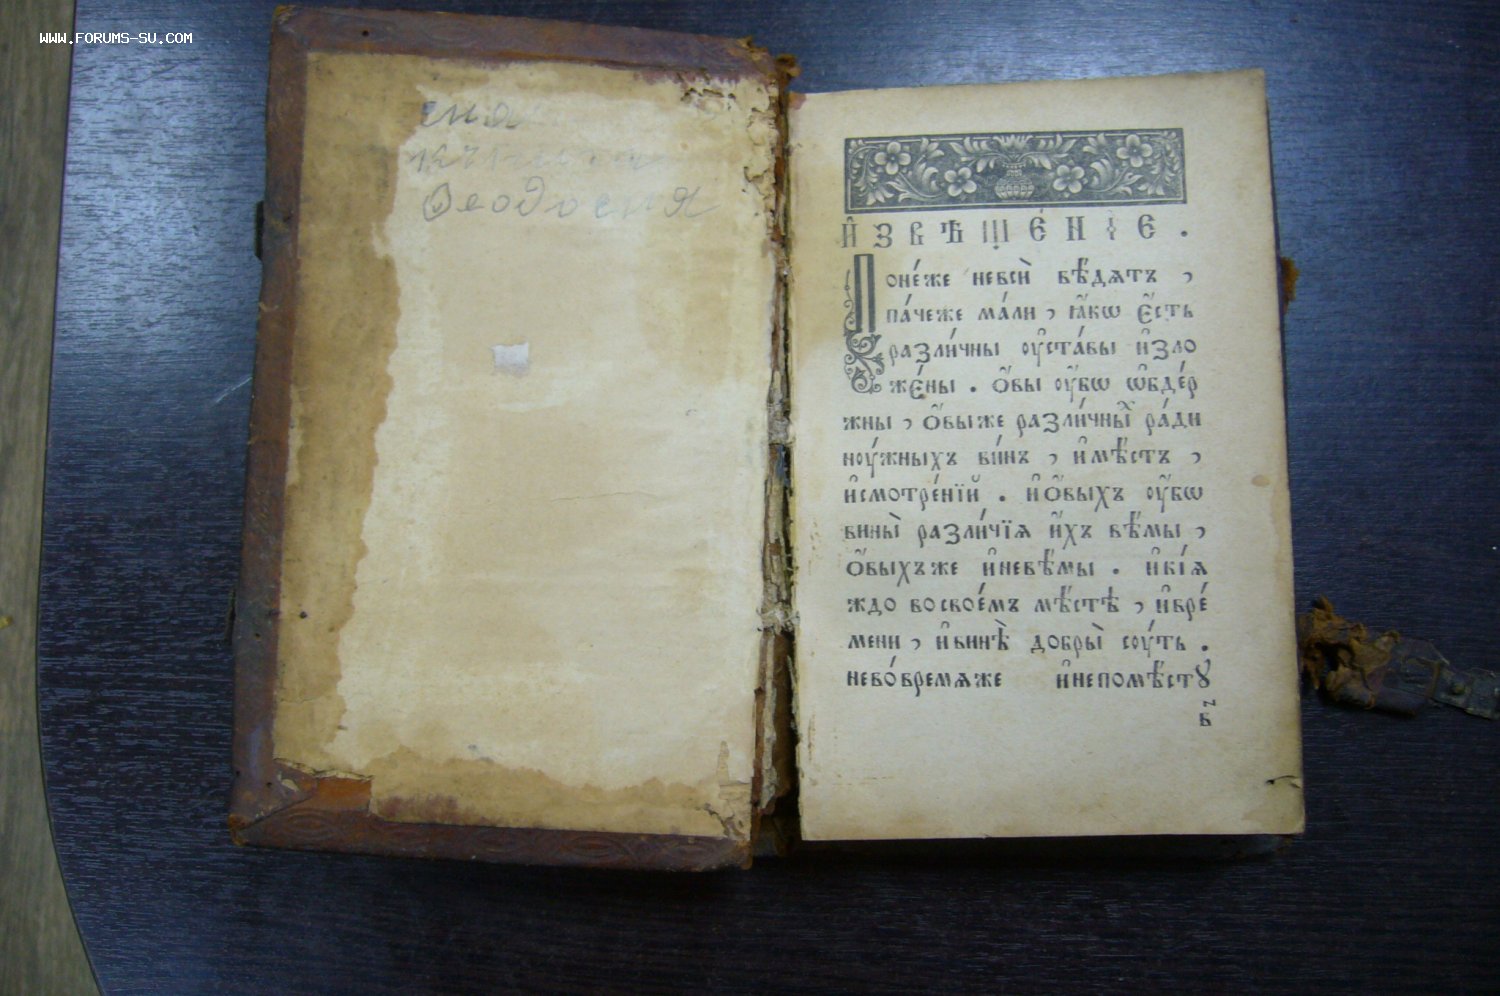 WWW.FORUMS-SU.COM
сия
Ѳеодосия
И҆ЗВѢЩЕ́НІЕ.
Поне́же невсѝ вѣ́дятъ ,
па́чеже ма́ли , ꙗ҆́кѡ є҆́сть
разли́чны оу҆ста́вы и҆зло
же́ны . ѻ҆́вы оу҆́бѡ ѡ҆бде́р
жны , ѻ҆́выже разли́чны̀ ра́ди
ноу́жныхъ ви́нъ , и҆мѣ́стъ ,
и҆смотре́нїй . и҆ѻ҆́выхъ оу҆́бѡ
вины̀ разли́чїѧ и҆́хъ вѣ́мы ,
ѻ҆́выхъже и҆невѣ́мы . и҆кі́ѧ
ждо восвое́мъ мѣ́стѣ , и҆вре́
мени , и҆винѣ̀ добры̀ соу́ть .
нево́времѧже и҆непомѣ́стꙋ
в҃